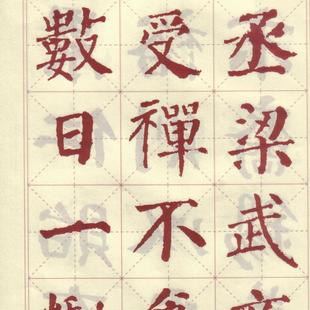 丞梁武
受禪不
數日一